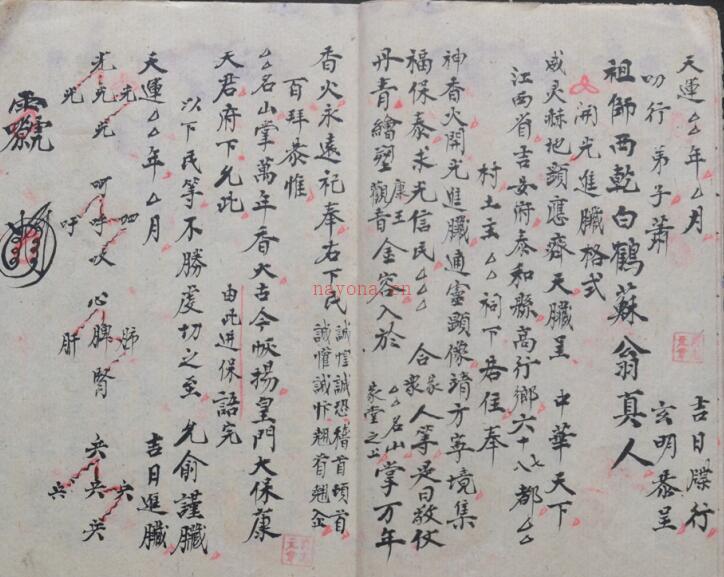 天運厶年厶月 吉日牒行
叨行 弟子蕭 玄明恭呈
祖師西乾白鶴蘇翁真人
開光進臟格式
威灵赫地顯應齋天臟呈 中華天下
江西省吉安府泰和縣高行鄉六十八都厶
村土主厶祠下居住奉
神香火開光進臟通靈顯像靖方寧境集
福保泰求光信民厶厶 合家人等是日敬伏
丹青繪塑 康王 觀音 金容入於 厶名山掌万年 家堂之上
香火永遠祀奉右下民 誠惶誠恐稽首頓首 誠懽誠忭
百拜恭惟
厶名山掌萬年香火古今帙揚皇門大保康
天君府下允此 由此进保語完
以下民等不勝虔切之至 允俞謹臟
天運厶年厶月 吉日進臟
光 光 光 光 光
呵 呼 呬 吹 呼
心 脾 肺 腎 肝
nayona.cn